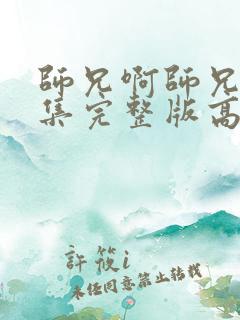 師兄啊師兄
集完整版高
許筱i
未经同意禁止转载